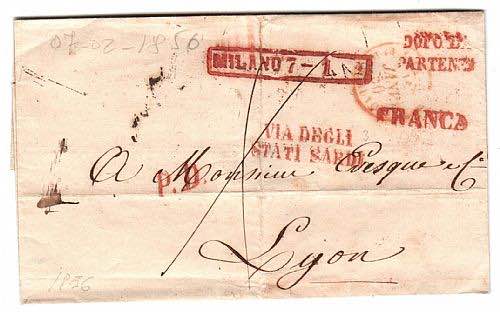 07-02-1856
DOPO LA
PARTENZA
MILANO 7-
FRANCA
VIA DEGLI
STATI SARDI
A Monsieur
P.D.
Lyon
1856